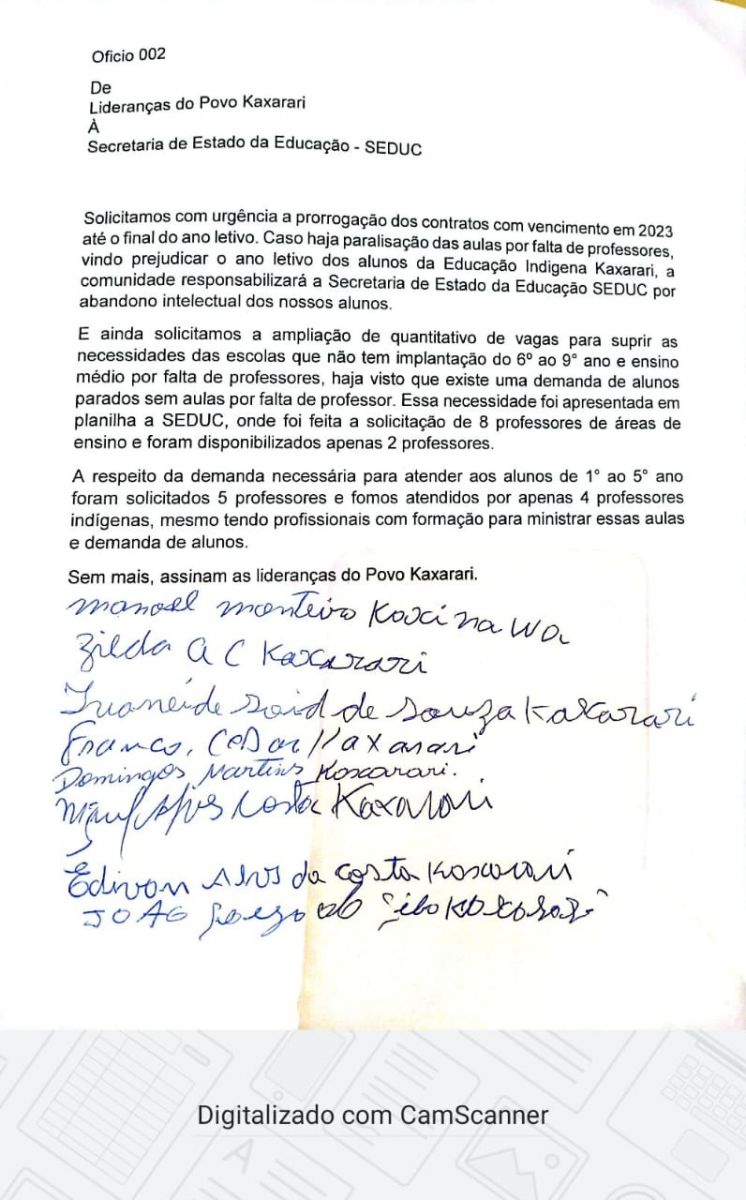 Oficio 002
De
Lideranças do Povo Kaxarari
À
Secretaria de Estado da Educação - SEDUC
Solicitamos com urgência a prorrogação dos contratos com vencimento em 2023
até o final do ano letivo. Caso haja paralisação das aulas por falta de professores,
vindo prejudicar o ano letivo dos alunos da Educação Indigena Kaxarari, a
comunidade responsabilizará a Secretaria de Estado da Educação SEDUC por
abandono intelectual dos nossos alunos.
E ainda solicitamos a ampliação de quantitativo de vagas para suprir as
necessidades das escolas que não tem implantação do 6º ao 9° ano e ensino
médio por falta de professores, haja visto que existe uma demanda de alunos
parados sem aulas por falta de professor. Essa necessidade foi apresentada em
planilha a SEDUC, onde foi feita a solicitação de 8 professores de áreas de
ensino e foram disponibilizados apenas 2 professores.
A respeito da demanda necessária para atender aos alunos de 1° ao 5° ano
foram solicitados 5 professores e fomos atendidos por apenas 4 professores
indígenas, mesmo tendo profissionais com formação para ministrar essas aulas
e demanda de alunos.
Sem mais, assinam as lideranças do Povo Kaxarari.
manoel monteiro Kaxinawa
Zilda A C Kaxarari
de souza Kaxarari
Cesar Kaxarari
Domingos Martins Kaxarari.
Costa Kaxarari
Edivan Alves da costa Kaxarari
JOAO
Digitalizado com CamScanner